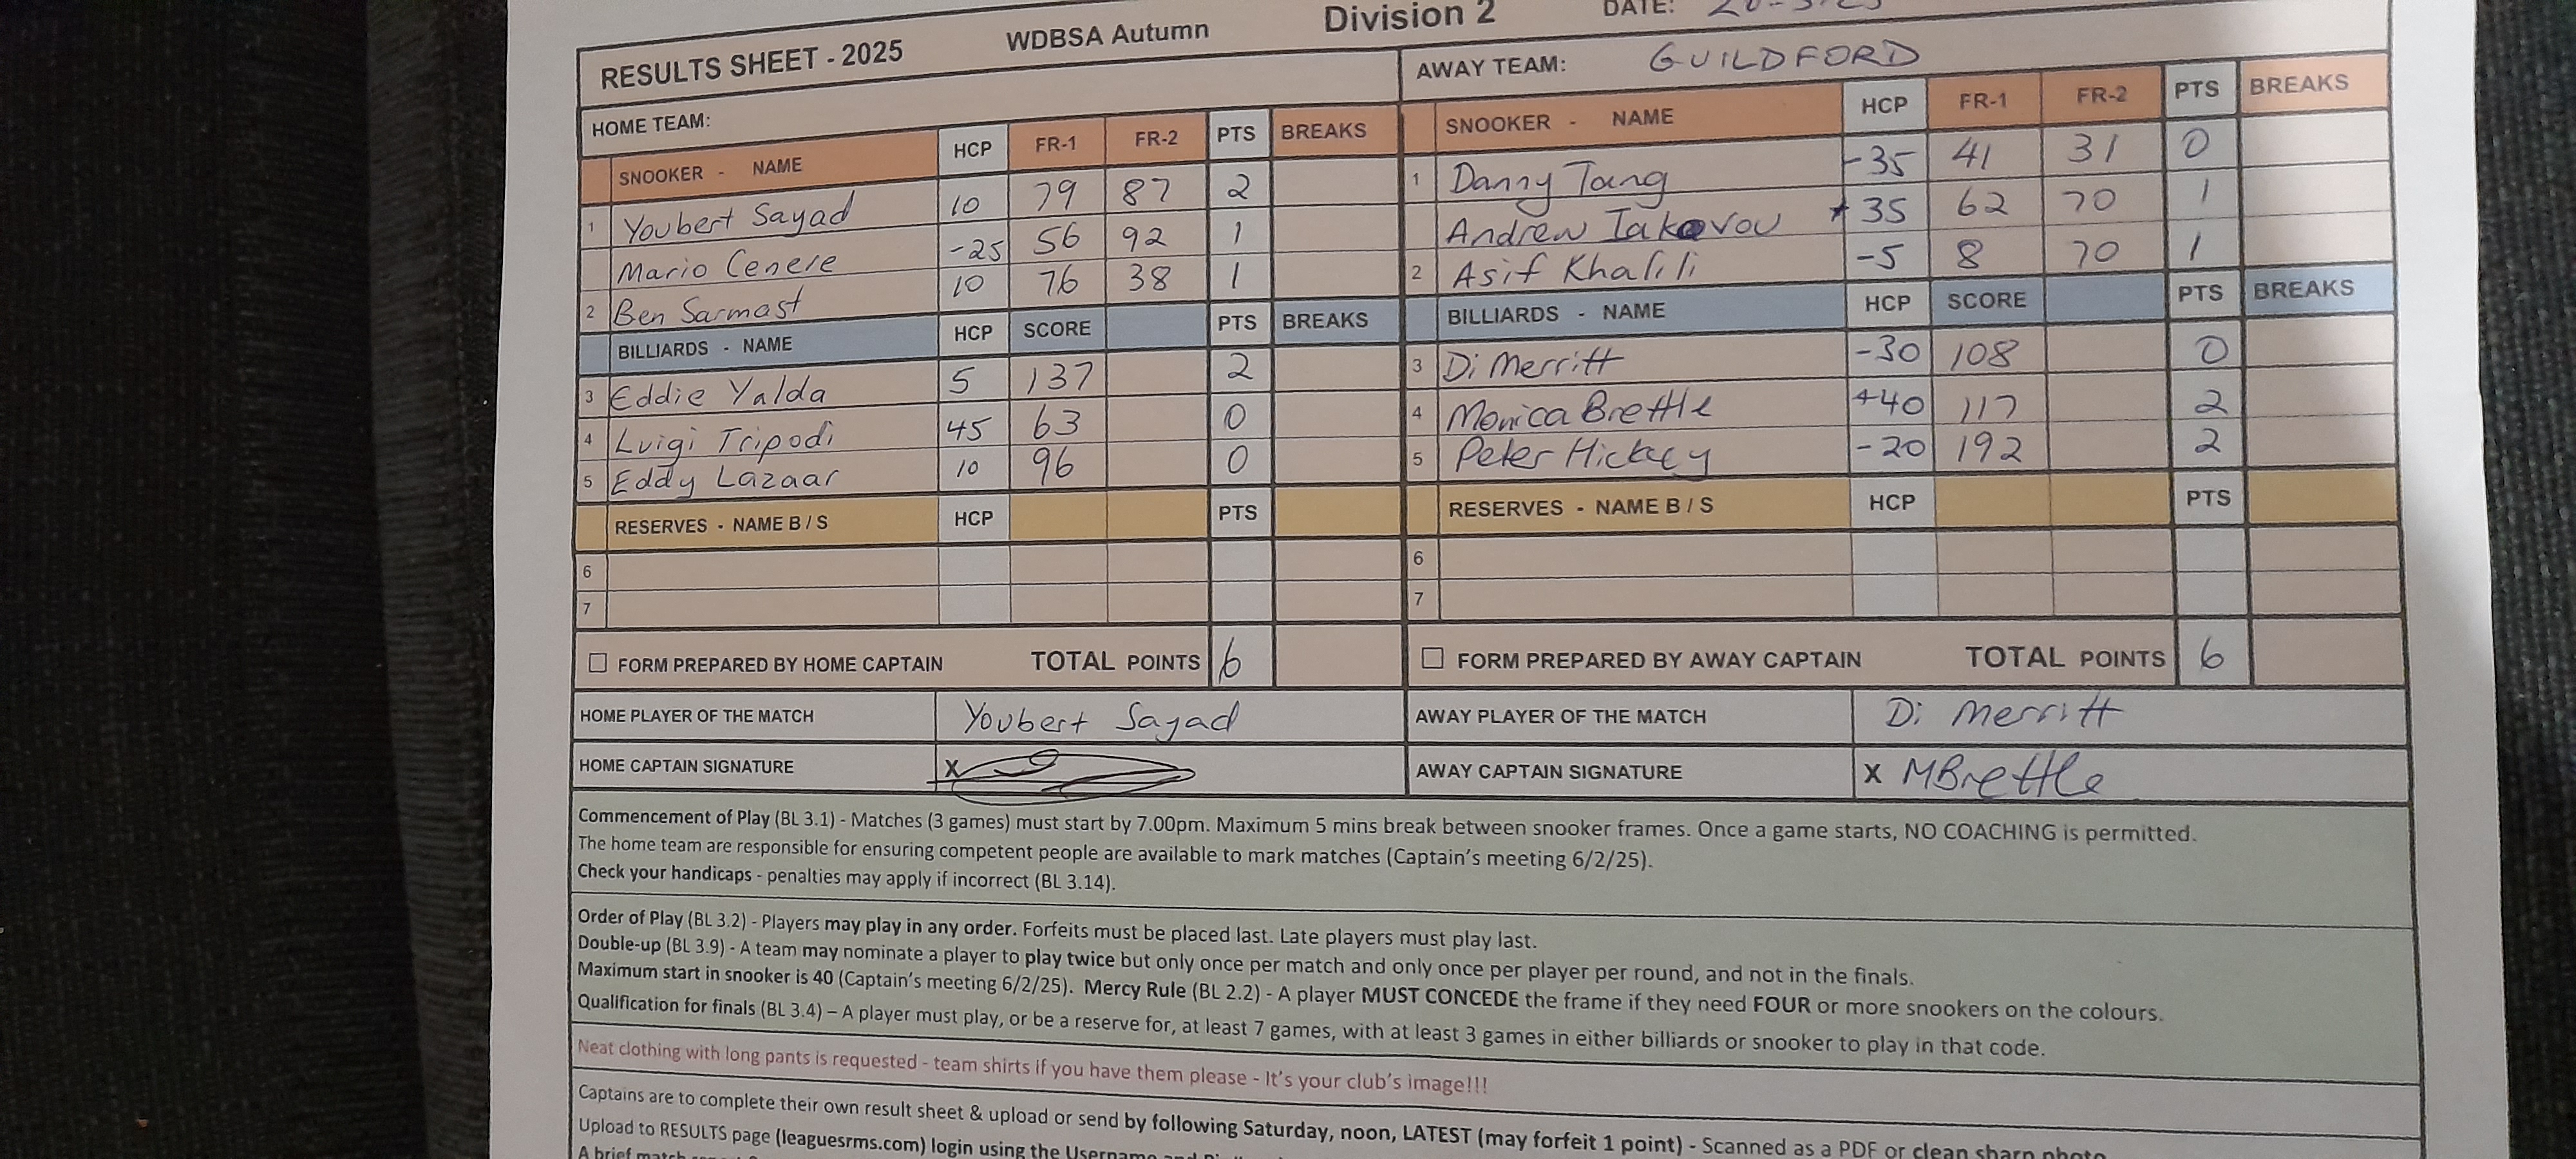 RESULTS SHEET - 2025 WDBSA Autumn Division 2 DATE:
HOME TEAM: AWAY TEAM: GUILDFORD
SNOOKER - NAME HCP FR-1 FR-2 PTS BREAKS SNOOKER - NAME HCP FR-1 FR-2 PTS BREAKS
1 Youbert Sayad 10 79 87 2 1 Danny Tang -35 41 31 0
Mario Cenere -25 56 92 1 Andrew Iakovou +35 62 70 1
2 Ben Sarmast 10 76 38 1 2 Asif Khalili -5 8 70 1
BILLIARDS - NAME HCP SCORE PTS BREAKS BILLIARDS - NAME HCP SCORE PTS BREAKS
3 Eddie Yalda 5 137 2 3 Di Merritt -30 108 0
4 Luigi Tripodi 45 63 0 4 Monica Brettle +40 117 2
5 Eddy Lazaar 10 96 0 5 Peter Hickey -20 192 2
RESERVES - NAME B / S HCP PTS RESERVES - NAME B / S HCP PTS
6 6
7 7
FORM PREPARED BY HOME CAPTAIN TOTAL POINTS 6 FORM PREPARED BY AWAY CAPTAIN TOTAL POINTS 6
HOME PLAYER OF THE MATCH Youbert Sayad AWAY PLAYER OF THE MATCH Di Merritt
HOME CAPTAIN SIGNATURE X AWAY CAPTAIN SIGNATURE X MBrettle
Commencement of Play (BL 3.1) - Matches (3 games) must start by 7.00pm. Maximum 5 mins break between snooker frames. Once a game starts, NO COACHING is permitted.
The home team are responsible for ensuring competent people are available to mark matches (Captain's meeting 6/2/25).
Check your handicaps - penalties may apply if incorrect (BL 3.14).
Order of Play (BL 3.2) - Players may play in any order. Forfeits must be placed last. Late players must play last.
Double-up (BL 3.9) - A team may nominate a player to play twice but only once per match and only once per player per round, and not in the finals.
Maximum start in snooker is 40 (Captain's meeting 6/2/25). Mercy Rule (BL 2.2) - A player MUST CONCEDE the frame if they need FOUR or more snookers on the colours.
Qualification for finals (BL 3.4) – A player must play, or be a reserve for, at least 7 games, with at least 3 games in either billiards or snooker to play in that code.
Neat clothing with long pants is requested - team shirts if you have them please - It's your club's image!!!
Captains are to complete their own result sheet & upload or send by following Saturday, noon, LATEST (may forfeit 1 point) - Scanned as a PDF or clean sharp photo
Upload to RESULTS page (leaguesrms.com) login using the Username and
A brief match